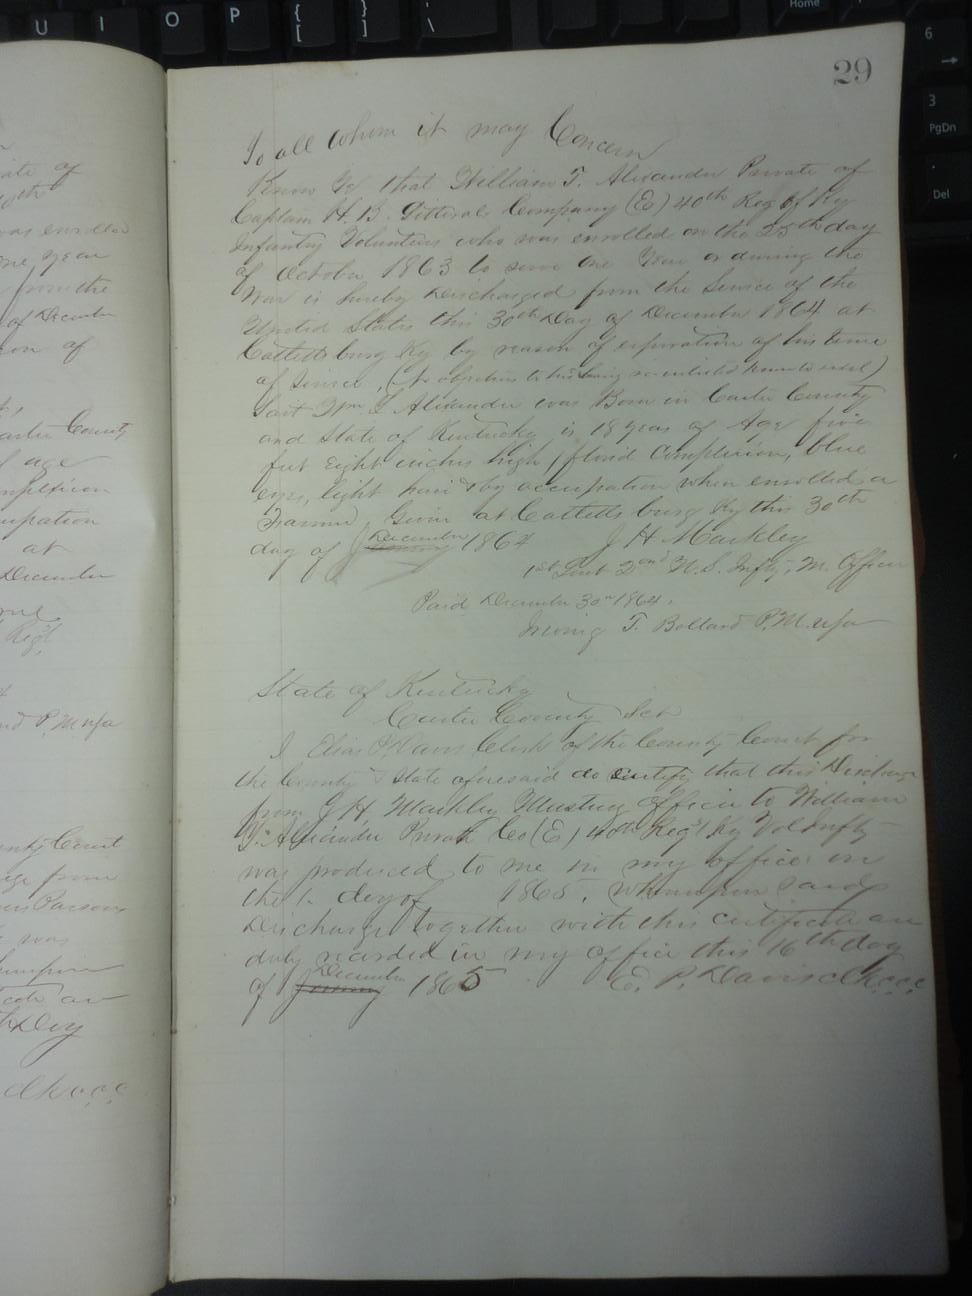 U I O P { [ } ] ' \ Home
6
→
3
PgDn
.
Del
29
To all whom it may Concern
Know Ye that William T. Alexander Private of
Captain H. B. Company (E) 40th Reg of Ky
Infantry Volunteers who was enrolled on the 25th day
of October 1863 to serve one Year or during the
War is hereby Discharged from the Service of the
United States this 30th Day of December 1864 at
Cattettsburg Ky by reason of expiration of his time
of Service, (No objection to his being re-enlisted known to exist)
Said Wm T Alexander was Born in Carter County
and State of Kentucky, is 18 years of Age five
feet Eight inches high, florid Complexion, blue
eyes, light hair & by occupation when enrolled a
Farmer, Given at Cattettsburg Ky this 30th
day of January December 1864 J H Mackley
1st Lieut 2nd U.S. Infty, M. Officer
Paid December 30th 1864.
T. Bollard P.M. usa
State of Kentucky
Carter County Sct
I Elias P. Davis Clerk of the County Court for
the County & State aforesaid do certify that this Discharge
from J H Mackley Mustering Officer to William
T. Alexander Private Co (E) 40th Reg't Ky Vol Infty
was produced to me in my office on
the 1. day of 1865, whereupon said
Discharge together with this certificate are
duly recorded in my office this 16th day
of January December 1865 E. P. Davis clk c.c.c.
ate of
was enrolled
one year
from the
of December
on of
arter County
age
mplexion
upation
at
December
Reg't
P. M usa
nty Court
ge from
Parsons
was
are
Day
clk c.c.c